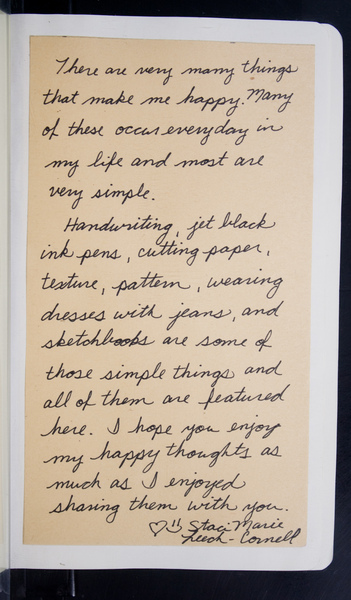 There are very many things
that make me happy. Many
of these occur everyday in
my life and most are
very simple.
Handwriting, jet black
ink pens, cutting paper,
texture, pattern, wearing
dresses with jeans, and
sketchbooks are some of
those simple things and
all of them are featured
here. I hope you enjoy
my happy thoughts as
much as I enjoyed
sharing them with you.
♡ Staci Marie
Leech-Cornell